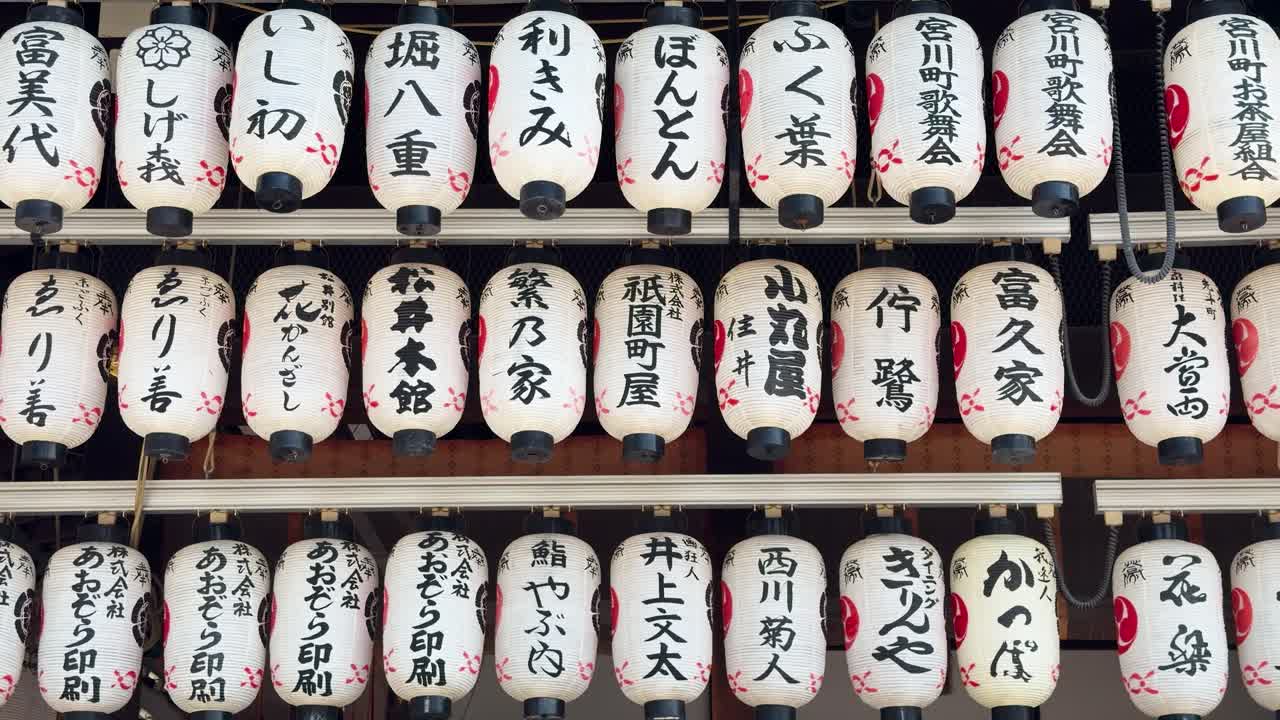 富美代
しげ森
いし初
堀八重
利きみ
ぼんとん
ふく葉
宮川町歌舞会
宮川町歌舞会
宮川町お茶屋組合
ゑり善
ゑり善
松井別館
花かんざし
松井本館
繁乃家
株式会社
祇園町屋
小丸屋
住井
佇鷺
富久家
大當両
株式会社
あおぞら印刷
株式会社
あおぞら印刷
株式会社
あおぞら印刷
株式会社
あおぞら印刷
鮨やぶ内
画狂人
井上文太
西川菊人
ダイニング
きーんや
かつぱ
花梁